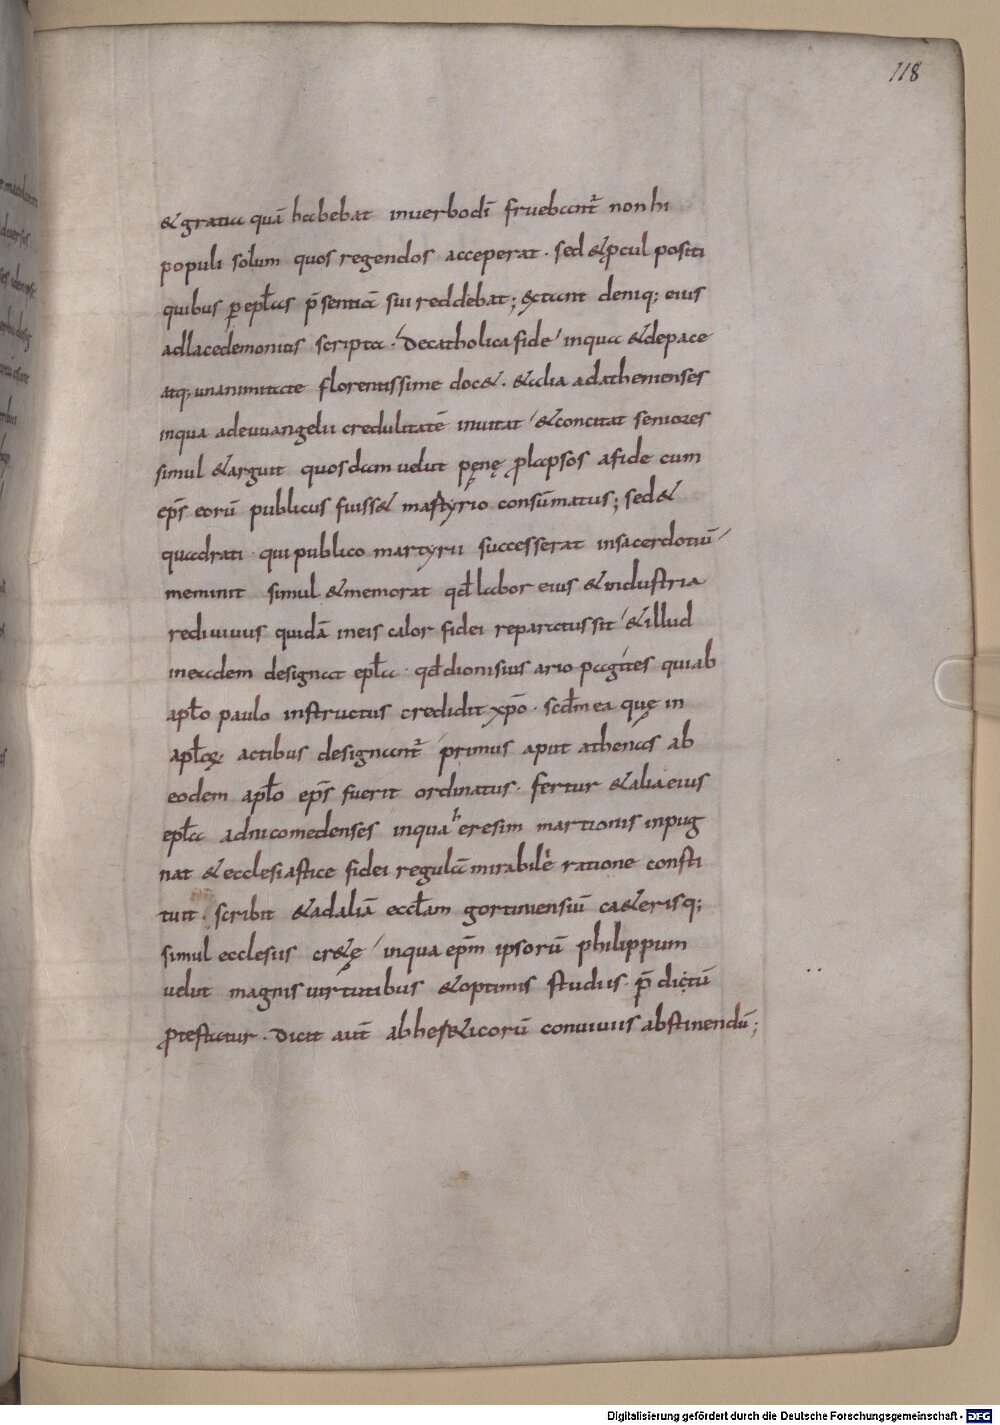 118
& gratia quā habebat inuerbodī fruebant᷑ non hi
populi solum quos regendos acceperat · sed & ꝓcul positi
quibus ꝑ epłas p̄sentiā sui reddebat ; extant deniq; eius
adlacedemonius scripta · decatholica fide inqua & depace
atq; unanimitate florentissime doc& · & alia adathenienses
inqua adeuuangelii credulitatē inuitat & concitat seniores
simul & arguit quosdam uelut pęnę ꝓlapsos afide cum
ep̄s eorū publicus fuiss& mastyrio consūmatus ; sed &
quadrati · qui publico martyrii successerat insacerdotiū
meminit simul & memorat qđ labor eius & industria
rediuiuus quidā ineis calor fidei reparatus sit & illud
ineadem designat epła · qđ dionisius ariopagites qui ab
apło paulo instructus credidit xp̄o · scđm ea quę in
apłoꝝ actibus designant᷑ primus aput athenas ab
eodem apło ep̄s fuerit ordinatus · fertur & alia eius
epła adnicomedenses inqua heresim martionis inpug
nat & ecclesiastice fidei regulā mirabile ratione consti
tuit · scribit & adaliā eccłam gortiniensiū ca&erisq;
simul ecclesiis cr&ę inqua ep̄m ipsorū philippum
uelut magnis uirtutibus & optimis studiis · p̄dictū
ꝓtestatur · dicit aut̄ ab hes&icorū conuiuiis abstinendū ;
Digitalisierung gefördert durch die Deutsche Forschungsgemeinschaft - DFG